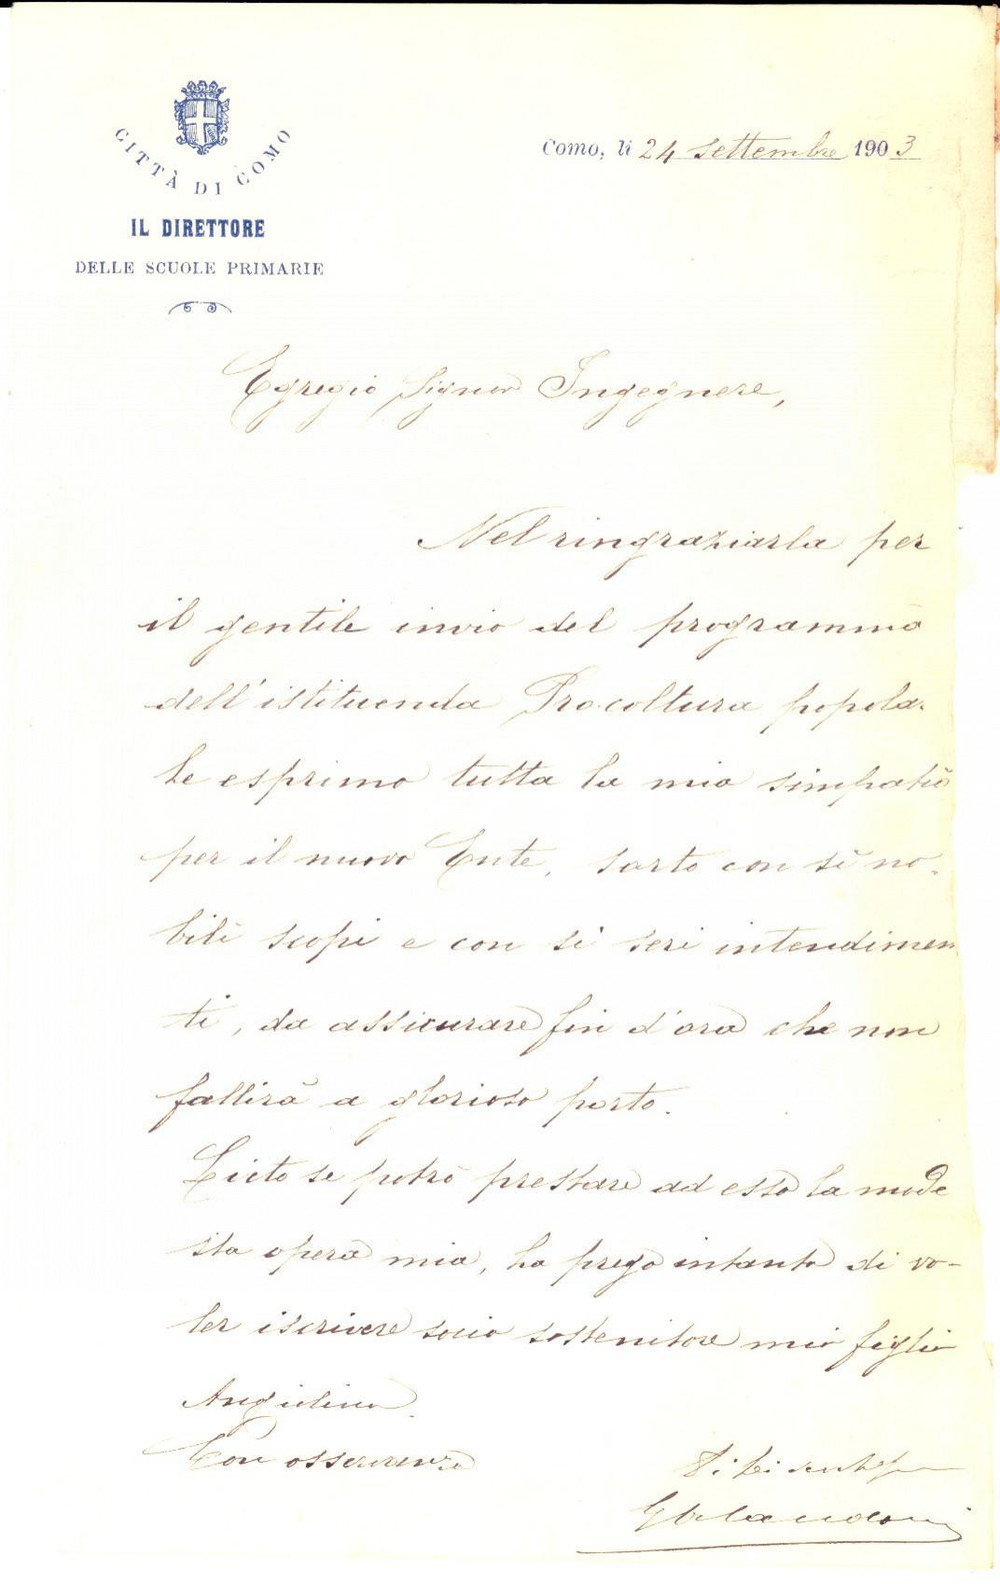 CITTÀ DI COMO
IL DIRETTORE
DELLE SCUOLE PRIMARIE
Como, li 24 settembre 1903
Egregio Signor Ingegnere,
Nel ringraziarla per
il gentile invio del programma
dell'istituenda Pro coltura popola.
Le esprimo tutta la mia simpatia
per il nuovo Ente, sorto con sì no-
bili scopi e con sì seri intendimen
ti, da assicurare fin d'ora che non
fallirà a glorioso porto.
Lieto se potrò prestare ad esso la mode
sta opera mia, La prego intanto di vo-
ler iscrivere socio sostenitore mio figlio
Angiolino.
Con osservanza
Di Lei